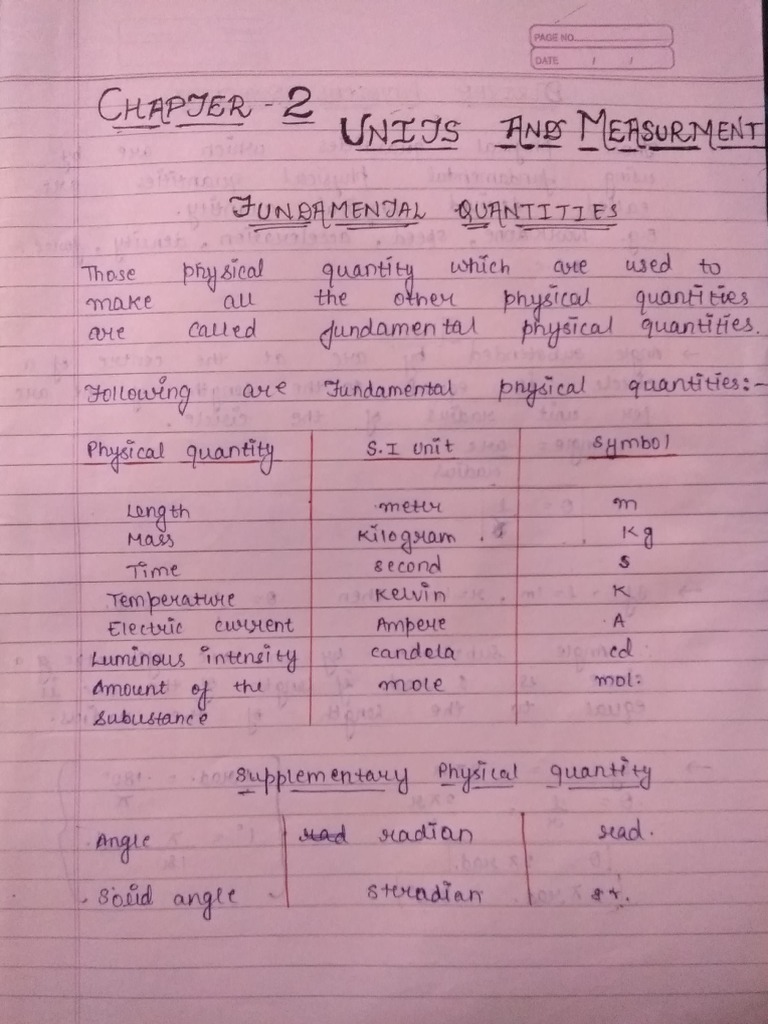 PAGE NO.
DATE / /
CHAPTER - 2
UNITS AND MEASURMENT
FUNDAMENTAL QUANTITIES
Those physical quantity which are used to
make all the other physical quantities
are called fundamental physical quantities.
Following are Fundamental physical quantities:-
Physical quantity S.I Unit Symbol
Length metre m
Mass Kilogram Kg
Time second s
Temperature Kelvin K
Electric current Ampere A
Luminous intensity candela cd
Amount of the mole mol.
Subustance
Supplementary Physical quantity
Angle rad radian rad.
Solid angle steradian sr.